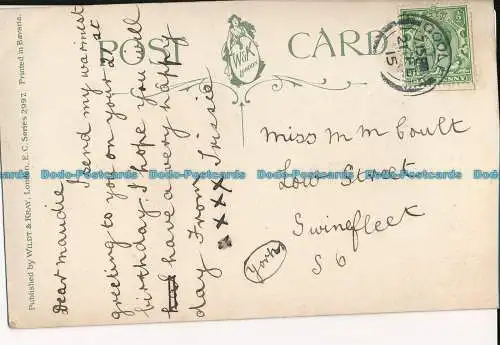 POST CARD
W&K
LONDON
GOOLE
Published by WILDT & KRAY, London, E.C. Series 2997. Printed in Bavaria.
Dear Maudie
I send my warmest
greeting to you on your 21st
birthday. I hope you will
have a very happy
day From Trissie
xxxx
Miss M M Coult
Low Street
Swinefleet
Yorks
S 6
Dodo-Postcards Dodo-Postcards Dodo-Postcards Dodo-Postcards
Dodo-Postcards Dodo-Postcards Dodo-Postcards Dodo-Postcards